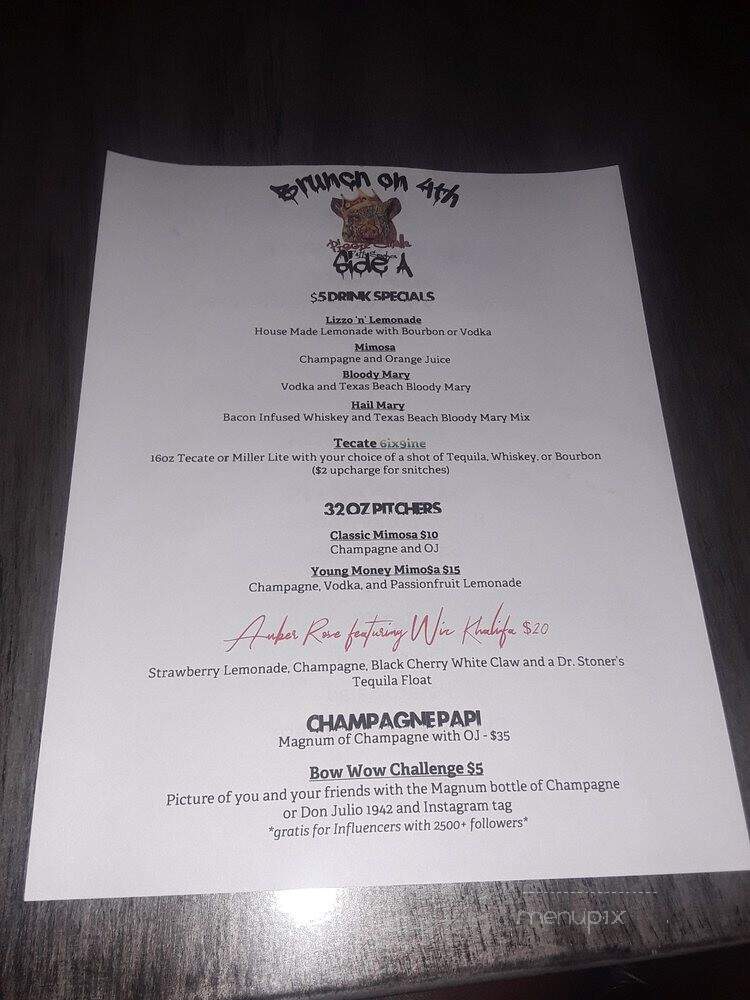 Brunch on 4th
Side A
$5 DRINK SPECIALS
Lizzo 'n' Lemonade
House Made Lemonade with Bourbon or Vodka
Mimosa
Champagne and Orange Juice
Bloody Mary
Vodka and Texas Beach Bloody Mary
Hail Mary
Bacon Infused Whiskey and Texas Beach Bloody Mary Mix
Tecate 6ix9ine
16oz Tecate or Miller Lite with your choice of a shot of Tequila, Whiskey, or Bourbon
($2 upcharge for snitches)
32 OZ PITCHERS
Classic Mimosa $10
Champagne and OJ
Young Money Mimo$a $15
Champagne, Vodka, and Passionfruit Lemonade
Amber Rose featuring Wiz Khalifa $20
Strawberry Lemonade, Champagne, Black Cherry White Claw and a Dr. Stoner's
Tequila Float
CHAMPAGNEPAPI
Magnum of Champagne with OJ - $35
Bow Wow Challenge $5
Picture of you and your friends with the Magnum bottle of Champagne
or Don Julio 1942 and Instagram tag
*gratis for Influencers with 2500+ followers*
menupix